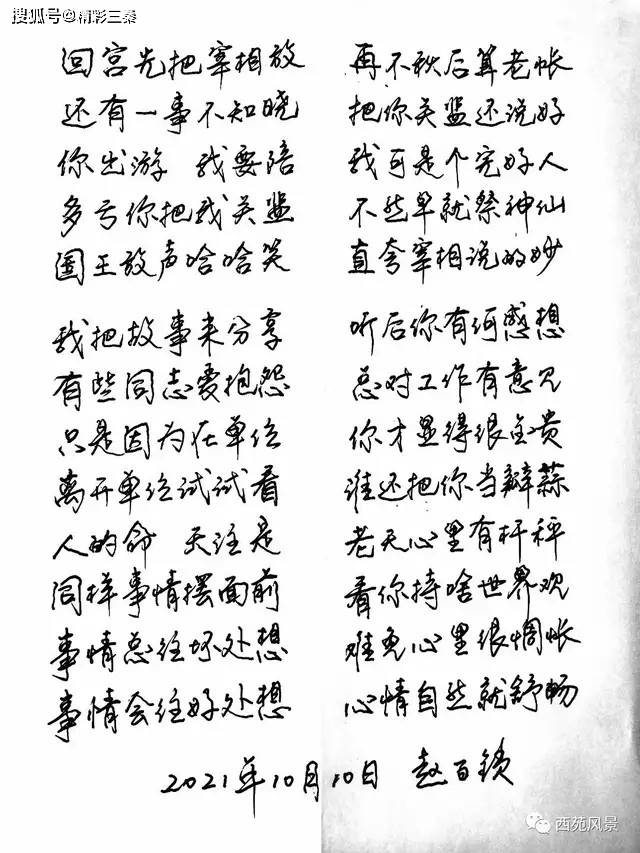 搜狐号@精彩三秦
回宫先把宰相放 再不秋后算老帐
还有一事不知晓 把你关监还说好
你出游 我要陪 我可是个完好人
多亏你把我关监 不然早就祭神仙
国王放声哈哈笑 直夸宰相说的妙
我把故事来分享 听后你有何感想
有些同志爱抱怨 总对工作有意见
只是因为在单位 你才显得很金贵
离开单位试试看 谁还把你当瓣蒜
人的命 天注定 老天心里有杆秤
同样事情摆面前 看你持啥世界观
事情总往坏处想 难免心里很惆怅
事情会往好处想 心情自然就舒畅
2021年10月10日 赵百锁
西苑风景